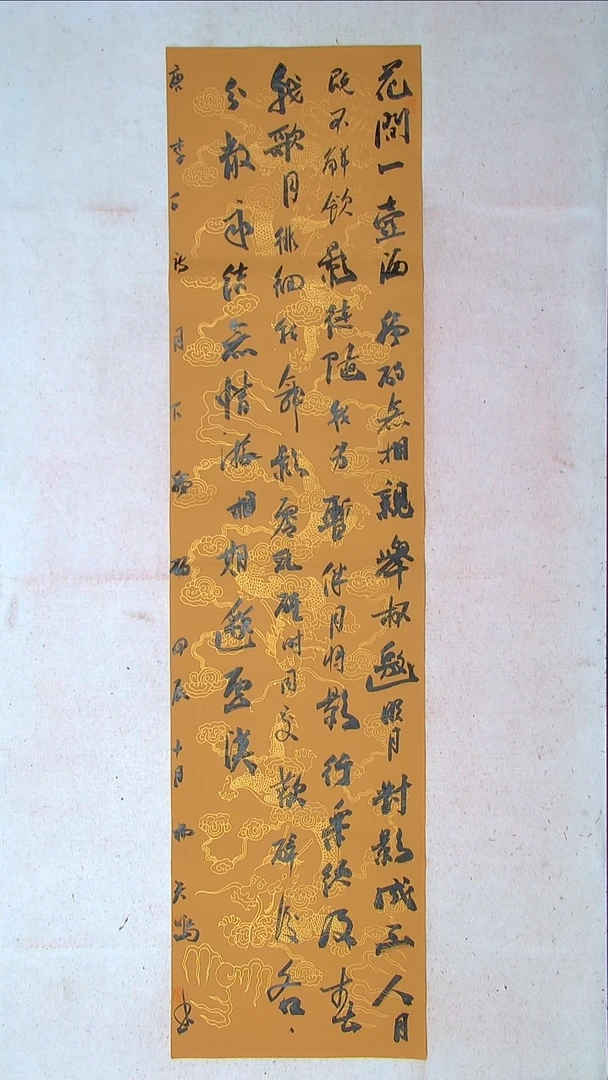 花間一壺酒獨酌無相親舉杯邀明月對影成三人月
既不解飲影徒隨我身暫伴月將影行樂須及春
我歌月徘徊我舞影零亂醒時同交歡醉後各
分散永結無情遊相期邈雲漢
唐李白詩月下獨酌甲辰十月書